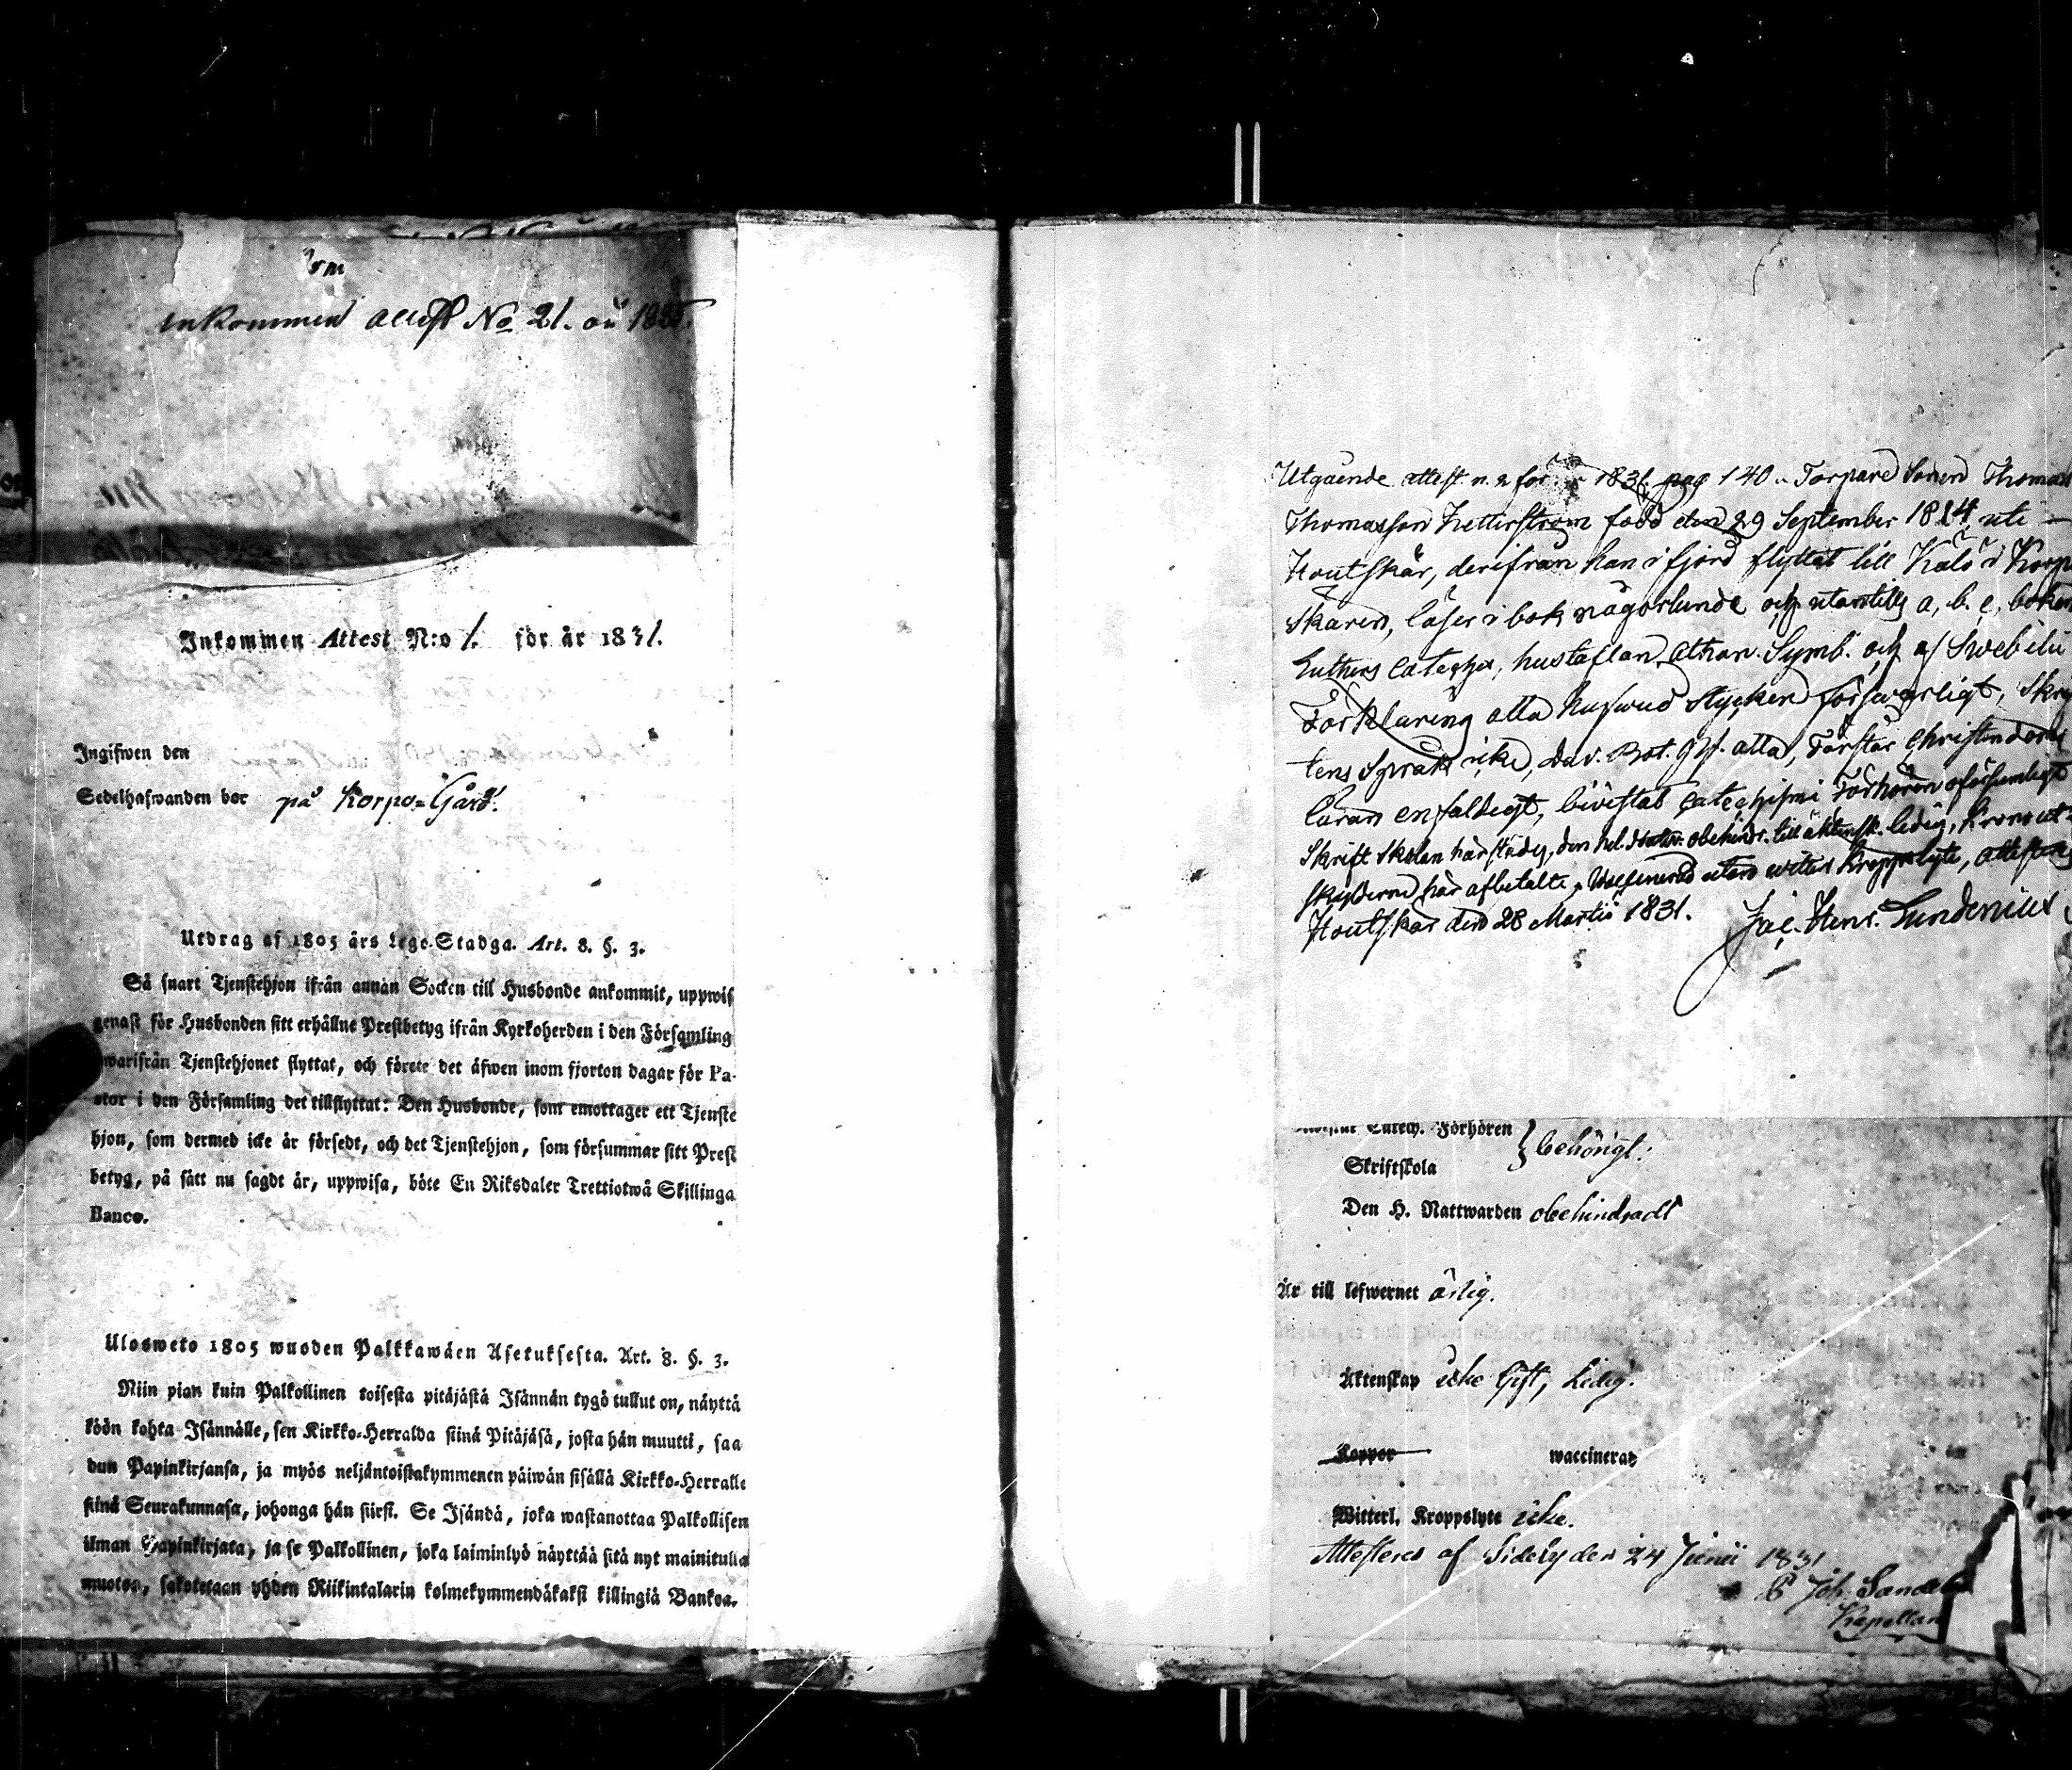 inkommen attest No 21. år
Inkommen Attest N:o 1. för år 1831.
Ingifwen den
Sedelhafwanden bor på Korpo-Gård.
Utdrag af 1805 års Lego-Stadga. Art. 8. §. 3.
Så snart Tjenstehjon ifrån annan Socken till Husbonde ankommit, uppwis
genast för Husbonden sitt erhållne Prestbetyg ifrån Kyrkoherden i den Församling
warifrån Tjenstehjonet flyttat, och förete det äfwen inom fjorton dagar för Pa-
stor i den Församling det tillflyttat: Den Husbonde, som emottager ett Tjenste
hjon, som dermed icke är försedt, och det Tjenstehjon, som försummar sitt Prest
betyg, på sätt nu sagdt är, uppwisa, böte En Riksdaler Trettiotwå Skillinga
Banco.
Ulosweto 1805 wuoden Palkkawäen Asetuksesta. Art. 8. §. 3.
Niin pian kuin Palkollinen toisesta pitäjästä Isännän tygö tullut on, näyttä
köön kohta Isännälle, sen Kirkko-Herralda siinä Pitäjäsä, josta hän muutti, saa
dun Papinkirjansa, ja myös neljäntoistakymmenen päiwän sisällä Kirkko-Herralle
siinä Seurakunnasa, johonga hän siirsi. Se Isändä, joka wastanottaa Palkollisen
ilman Papinkirjata, ja se Palkollinen, joka laiminlyö näyttää sitä nyt mainitulla
muotoa, sakotetaan yhden Riikintalarin kolmekymmendäkaksi killingiä Bankoa.
Utgående attest n. 2 för 1831 pag 140. Torpare Sonen Thomas
Thomasson Zetterström född den 29 September 1814 uti
Houtskär, derifrån han i fjord flyttat till Kälö i Korpo
skären, läser i bok någorlunda och utantill a, b, c, boken
Luthers Cateches, hustaflan, Athan. Symb. och af Swebilii
Förklaring alla hufwud stycken förswarligt, Skrif
tens Språk icke, Dav. Bot. Ps. alla, Förstår Christendoms
läran enfaldigt, biwistat Catechismi Förhören oförsumligt
Skrift Skolan härstädes, den hel. Nattw. obehindr. till äktensk. ledig, Krono ut-
skylderne här afbetalte, Vaccinerad utan witterl. Kroppslyte, attesteras
Houtskär den 28 Martii 1831. Jac. Henr. Lundenius
Catech. Förhören
Skriftskola } behörigt:
Den H. Nattwarden obehindradt
Är till lefwernet ärlig.
Äktenskap icke Gift, Ledig.
Koppor waccinerad
Witterl. Kroppslyte icke.
Attesteres af Sideby den 24 Junii 1831
Joh. Sandel
Kapellan